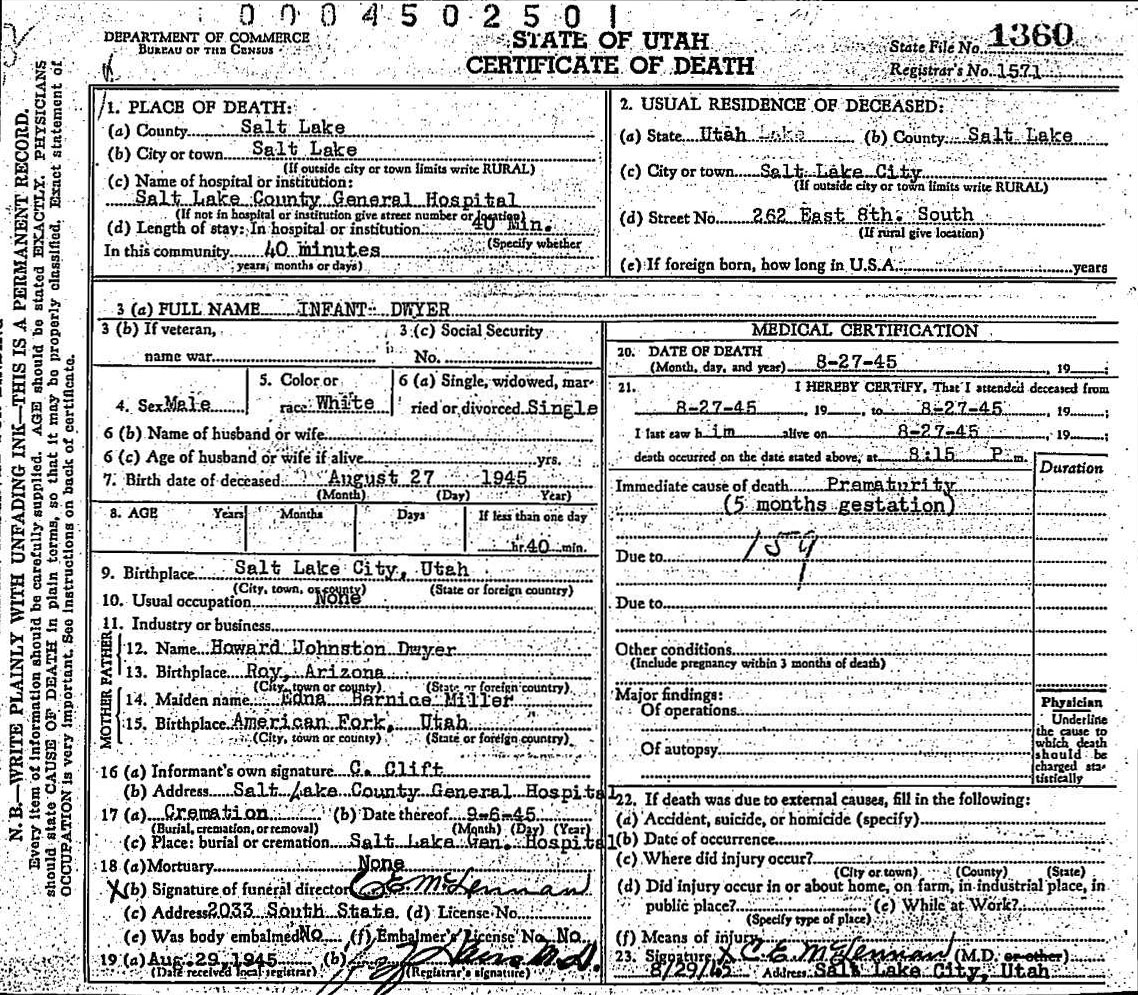 0004502501
DEPARTMENT OF COMMERCE
BUREAU OF THE CENSUS
STATE OF UTAH
CERTIFICATE OF DEATH
State File No. 1360
Registrar's No. 1571
N. B.—WRITE PLAINLY WITH UNFADING INK—THIS IS A PERMANENT RECORD.
Every item of information should be carefully supplied. AGE should be stated EXACTLY. PHYSICIANS
should state CAUSE OF DEATH in plain terms, so that it may be properly classified. Exact statement of
OCCUPATION is very important. See instructions on back of certificate.
1. PLACE OF DEATH:
(a) County Salt Lake
(b) City or town Salt Lake
(If outside city or town limits write RURAL)
(c) Name of hospital or institution:
Salt Lake County General Hospital
(If not in hospital or institution give street number or location)
(d) Length of stay: In hospital or institution 40 Min.
(Specify whether
In this community 40 minutes
years, months or days)
2. USUAL RESIDENCE OF DECEASED:
(a) State Utah Lake (b) County Salt Lake
(c) City or town Salt Lake City
(If outside city or town limits write RURAL)
(d) Street No. 262 East 8th. South
(If rural give location)
(e) If foreign born, how long in U.S.A. years
3 (a) FULL NAME INFANT DWYER
3 (b) If veteran, 3 (c) Social Security
name war No.
4. Sex Male 5. Color or race White 6 (a) Single, widowed, married or divorced Single
6 (b) Name of husband or wife
6 (c) Age of husband or wife if alive yrs.
7. Birth date of deceased August 27 1945
(Month) (Day) Year)
8. AGE Years Months Days If less than one day
hr. 40 min.
9. Birthplace Salt Lake City, Utah
(City, town, or county) (State or foreign country)
10. Usual occupation None
11. Industry or business
FATHER
12. Name Howard Johnston Dwyer
13. Birthplace Roy, Arizona
(City, town or county) (State or foreign country)
MOTHER
14. Maiden name Edna Bernice Miller
15. Birthplace American Fork, Utah
(City, town or county) (State or foreign country)
16 (a) Informant's own signature C. Clift
(b) Address Salt Lake County General Hospital
17 (a) Cremation (b) Date thereof 9-6-45
(Burial, cremation, or removal) (Month) (Day) (Year)
(c) Place: burial or cremation Salt Lake Gen. Hospital
18 (a) Mortuary None
X (b) Signature of funeral director C E McLennan
(c) Address 2033 South State (d) License No.
(e) Was body embalmed No (f) Embalmer's License No. No.
19 (a) Aug. 29, 1945 (b) M.D.
(Date received local registrar) (Registrar's signature)
MEDICAL CERTIFICATION
20. DATE OF DEATH
(Month, day, and year) 8-27-45, 19
21. I HEREBY CERTIFY, That I attended deceased from
8-27-45, 19, to 8-27-45, 19;
I last saw him alive on 8-27-45, 19;
death occurred on the date stated above, at 8:15 P m.
Duration
Immediate cause of death Prematurity
(5 months gestation)
159
Due to
Due to
Other conditions
(Include pregnancy within 3 months of death)
Major findings:
Of operations
Of autopsy
Physician
Underline
the cause to
which death
should be
charged sta-
tistically
22. If death was due to external causes, fill in the following:
(a) Accident, suicide, or homicide (specify)
(b) Date of occurrence
(c) Where did injury occur?
(City or town) (County) (State)
(d) Did injury occur in or about home, on farm, in industrial place, in
public place? (e) While at Work?
(Specify type of place)
(f) Means of injury
23. Signature C. E. McLennan (M.D. or other)
8/29/45 Address Salt Lake City, Utah